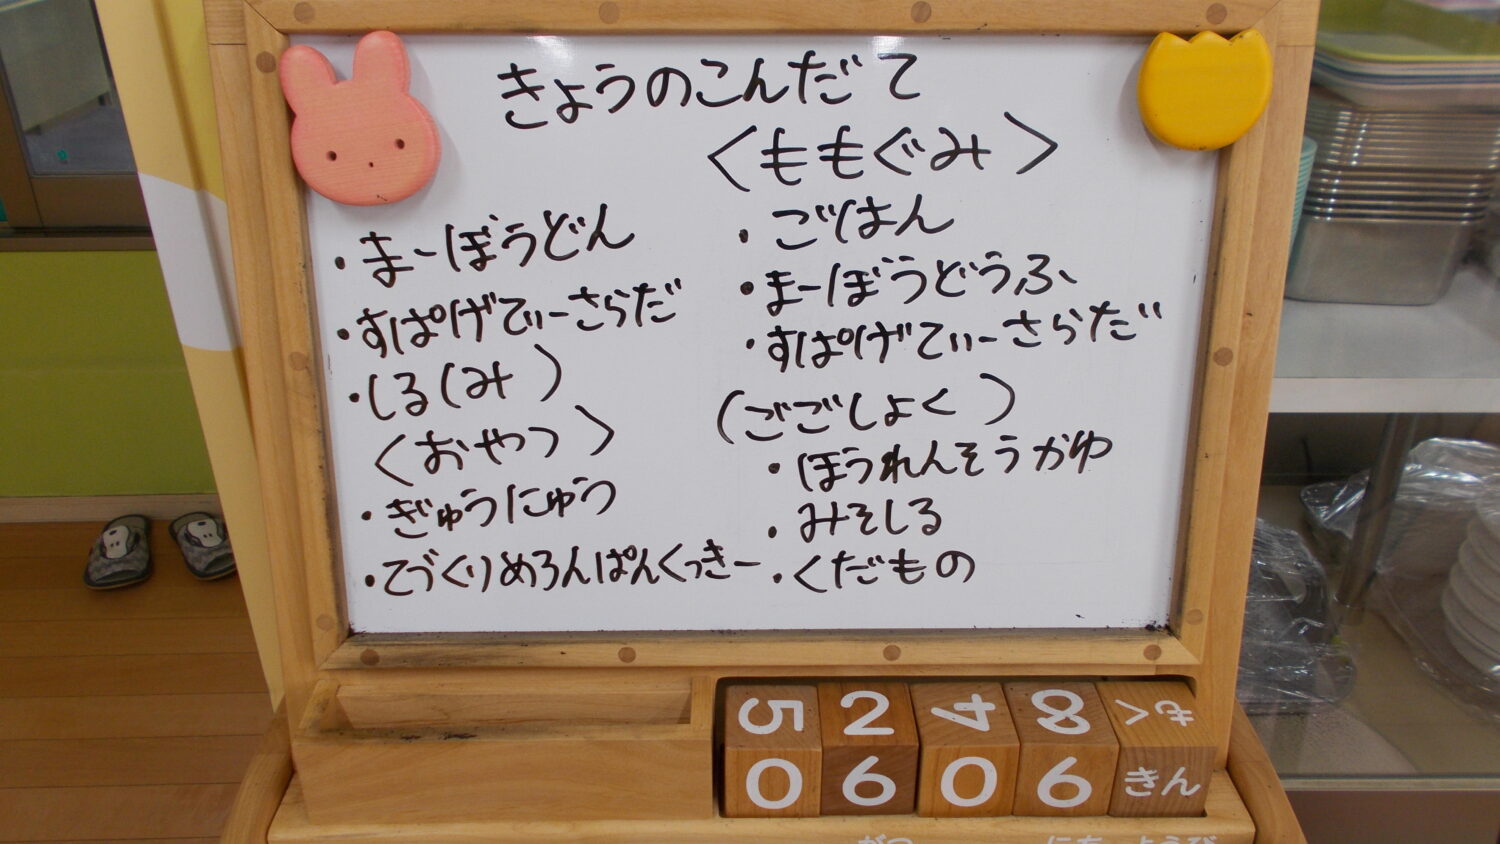 きょうのこんだて
・まーぼうどん
・すぱげてぃーさらだ
・しる(み )
〈おやつ 〉
・ぎゅうにゅう
・てづくりめろんぱんくっきー
〈ももぐみ〉
・ごはん
・まーぼうどうふ
・すぱげてぃーさらだ
(ごごしょく )
・ほうれんそうかゆ
・みそしる
・くだもの
5 2 4 8 もく
0 6 0 6 きん
がつ にち ようび